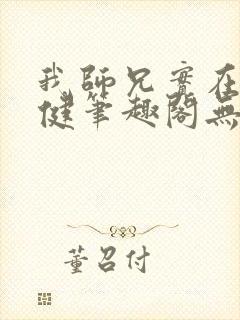 我師兄實在
健筆趣閣無
董召付